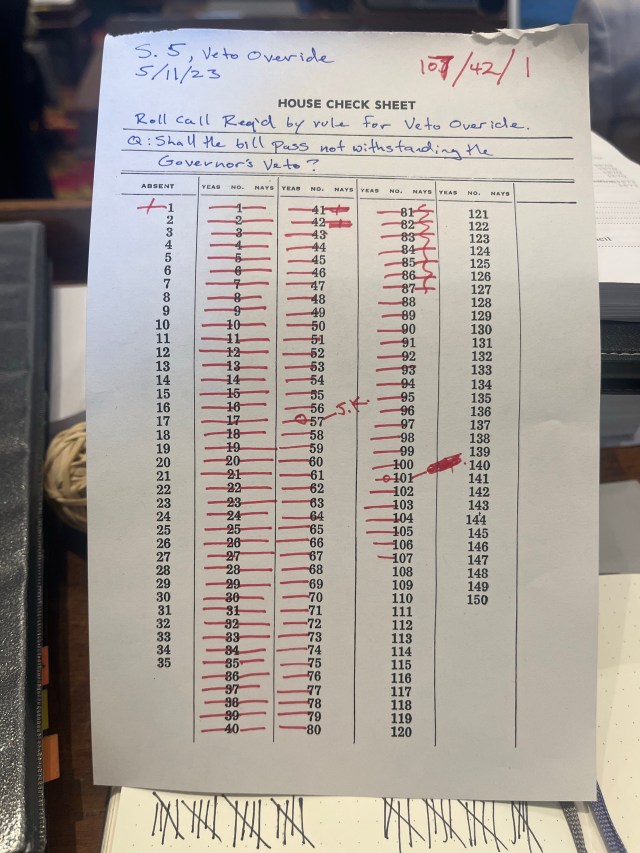 S. 5, Veto Overide
5/11/23
107/42/1
HOUSE CHECK SHEET
Roll Call Req'd by rule For Veto Overide.
Q: Shall the bill Pass not withstanding the
Governor's Veto?
ABSENT YEAS NO. NAYS YEAS NO. NAYS YEAS NO. NAYS YEAS NO. NAYS
1 1 41 81 121
2 2 42 82 122
3 3 43 83 123
4 4 44 84 124
5 5 45 85 125
6 6 46 86 126
7 7 47 87 127
8 8 48 88 128
9 9 49 89 129
10 10 50 90 130
11 11 51 91 131
12 12 52 92 132
13 13 53 93 133
14 14 54 94 134
15 15 55 95 135
16 16 56 96 136
17 17 57 97 137
18 18 58 98 138
19 19 59 99 139
20 20 60 100 140
21 21 61 101 141
22 22 62 102 142
23 23 63 103 143
24 24 64 104 144
25 25 65 105 145
26 26 66 106 146
27 27 67 107 147
28 28 68 108 148
29 29 69 109 149
30 30 70 110 150
31 31 71 111
32 32 72 112
33 33 73 113
34 34 74 114
35 35 75 115
36 76 116
37 77 117
38 78 118
39 79 119
40 80 120